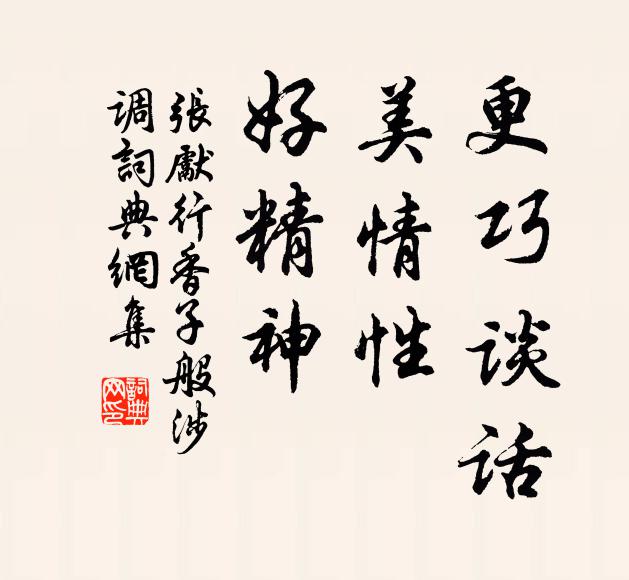 更巧谈话
美情性
好精神
張獻行香子般涉
调詞典網集
詞典网印